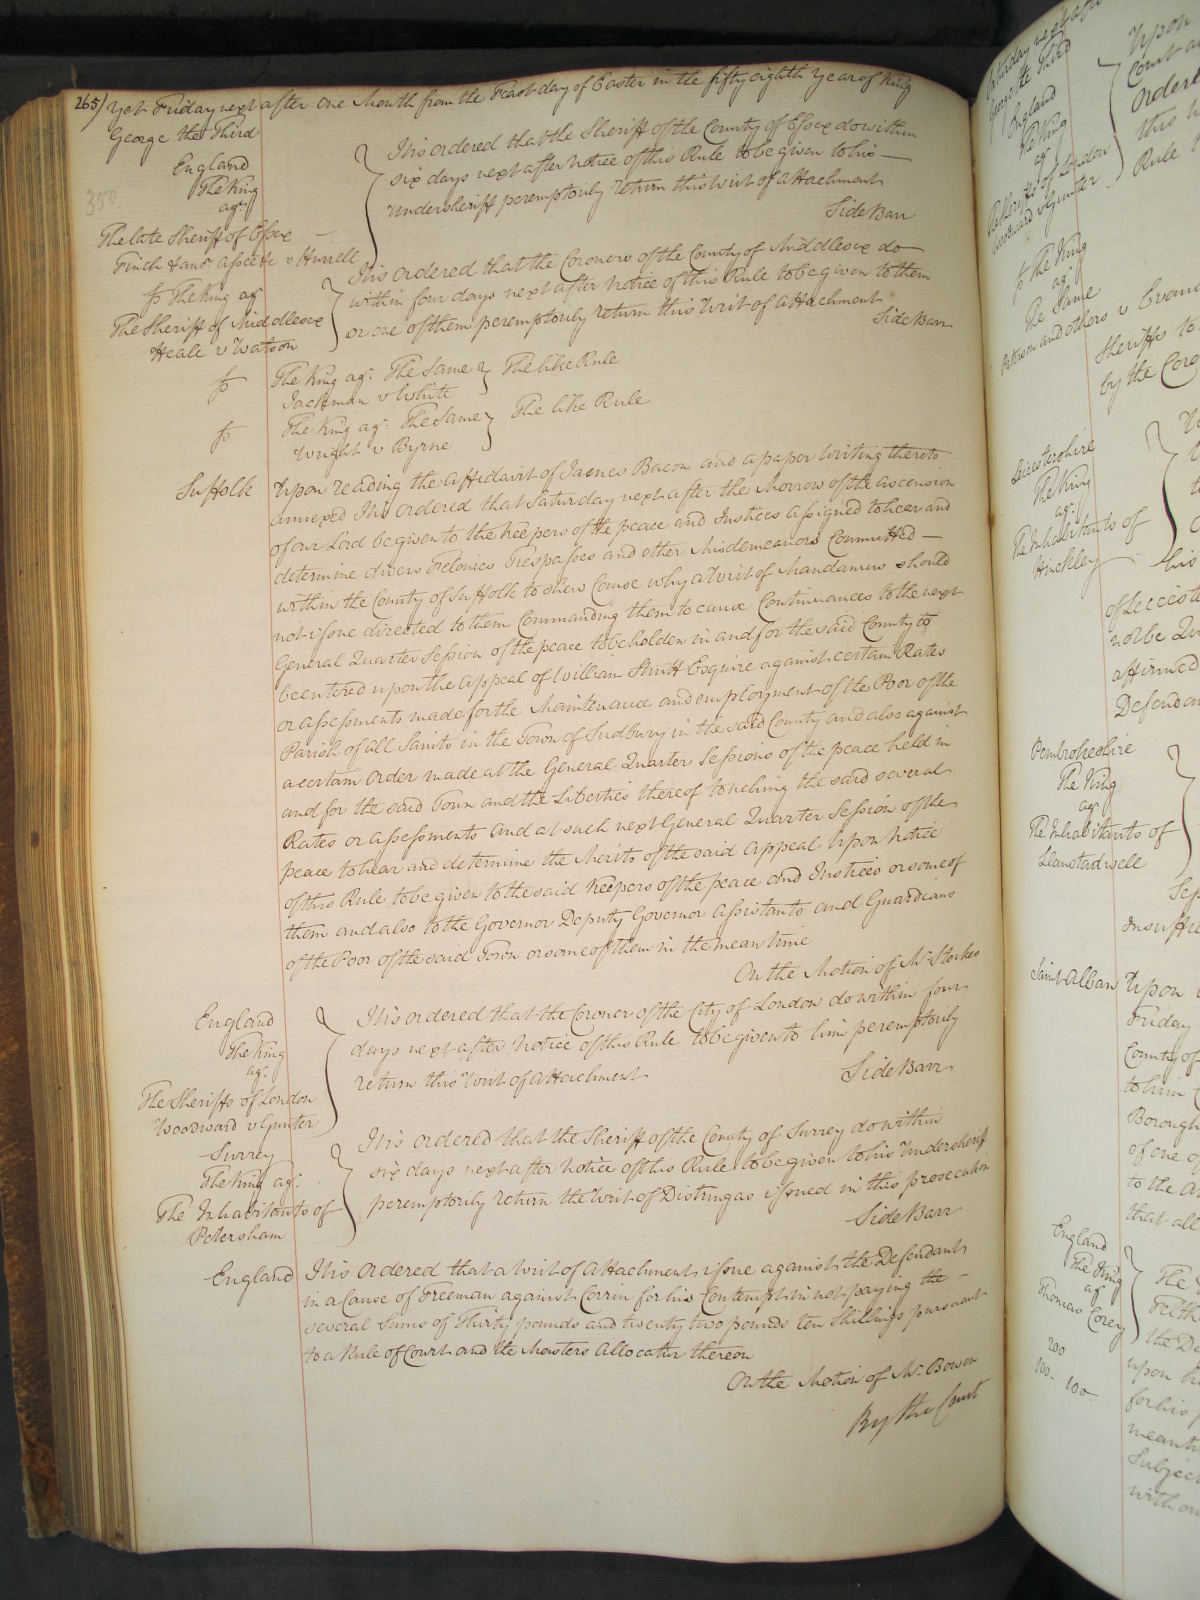 265) Yet Friday next after one Month from the Feast day of Easter in the fifty eighth Year of King
George the Third
350
England
The King
agt
The late Sheriff of Essex
Finch & anor assee &c v Hurrell
It is ordered that the Sheriff of the County of Essex do within
six days next after Notice of this Rule to be given to his
Undersheriff peremptorily return this Writ of Attachment
Side Barr
The King agt
The Sheriff of Middlesex
Heale v Watson
It is ordered that the Coroners of the County of Middlesex do
within four days next after Notice of this Rule to be given to them
or one of them peremptorily return this Writ of Attachment
Side Barr
The King agt. The Same
Jackman v White
The like Rule
The King agt. The Same
Wright v Byrne
The like Rule
Suffolk
Upon reading the Affidavit of James Bacon and a paper Writing thereto
annexed It is ordered that Saturday next after the Morrow of the Ascension
of our Lord be given to the Keepers of the peace and Justices assigned to hear and
determine divers Felonies Trespasses and other Misdemeanors Committed
within the County of Suffolk to shew Cause why a Writ of Mandamus should
not issue directed to them Commanding them to cause Continuances to the next
General Quarter Session of the peace to be holden in and for the said County to
be entered upon the Appeal of William Strutt Esquire against certain Rates
or assessments made for the Maintenance and employment of the Poor of the
Parish of All Saints in the Town of Sudbury in the said County and also against
a certain Order made at the General Quarter Sessions of the peace held in
and for the said Town and the Liberties thereof touching the said several
Rates or assessments and at such next General Quarter Session of the
peace to hear and determine the Merits of the said Appeal Upon Notice
of this Rule to be given to the said Keepers of the peace and Justices or some of
them and also to the Governor Deputy Governor Assistants and Guardians
of the Poor of the said Town or some of them in the mean time
On the Motion of Mr. Storks
England
The King
agt.
The Sheriffs of London
Woodward v Gunter
It is ordered that the Coroner of the City of London do within four
days next after Notice of this Rule to be given to him peremptorily
return this Writ of Attachment
Side Barr
Surrey
The King agt.
The Inhabitants of
Petersham
It is ordered that the Sheriff of the County of Surrey do within
six days next after Notice of this Rule to be given to his Undersheriff
peremptorily return the Writ of Distringas issued in this prosecution
Side Barr
England
It is Ordered that a Writ of Attachment issue against the Defendant
in a Cause of Freeman against Corrin for his Contempt in not paying the
several Sums of Thirty pounds and twenty two pounds ten Shillings pursuant
to a Rule of Court and the Masters Allocatur thereon
On the Motion of Mr. Bowen
By the Court
George the Third
England
The King
agt
The Sheriffs of London
Woodward v Gunter
Upon
Ordered
this
Rule
The King
agt
The Same
and others v
Sheriffs to
by the Coro
Leicestershire
The King
agt.
The Inhabitants of
Hinckley
his
of Leicest
not be Qu
affirmed
Defendan
Pembrokeshire
The King
agt
The Inhabitants of
Llanstadwell
Ses
Insuffic
Saint Alban
Upon
Friday
County of
to him
Borough
of one of
to the A
that all
England
The King
agt
Thomas Corey
200
100- 100-
The
Felth
the De
upon h
for his
mean
Subject
with ou